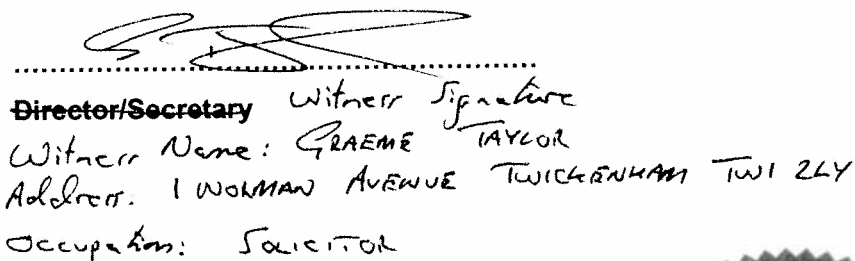 Director/Secretary Witness Signature
Witness Name: GRAEME TAYLOR
Address. 1 AVENUE TWICKENHAM TW1 2LY
Occupation: SOLICITOR